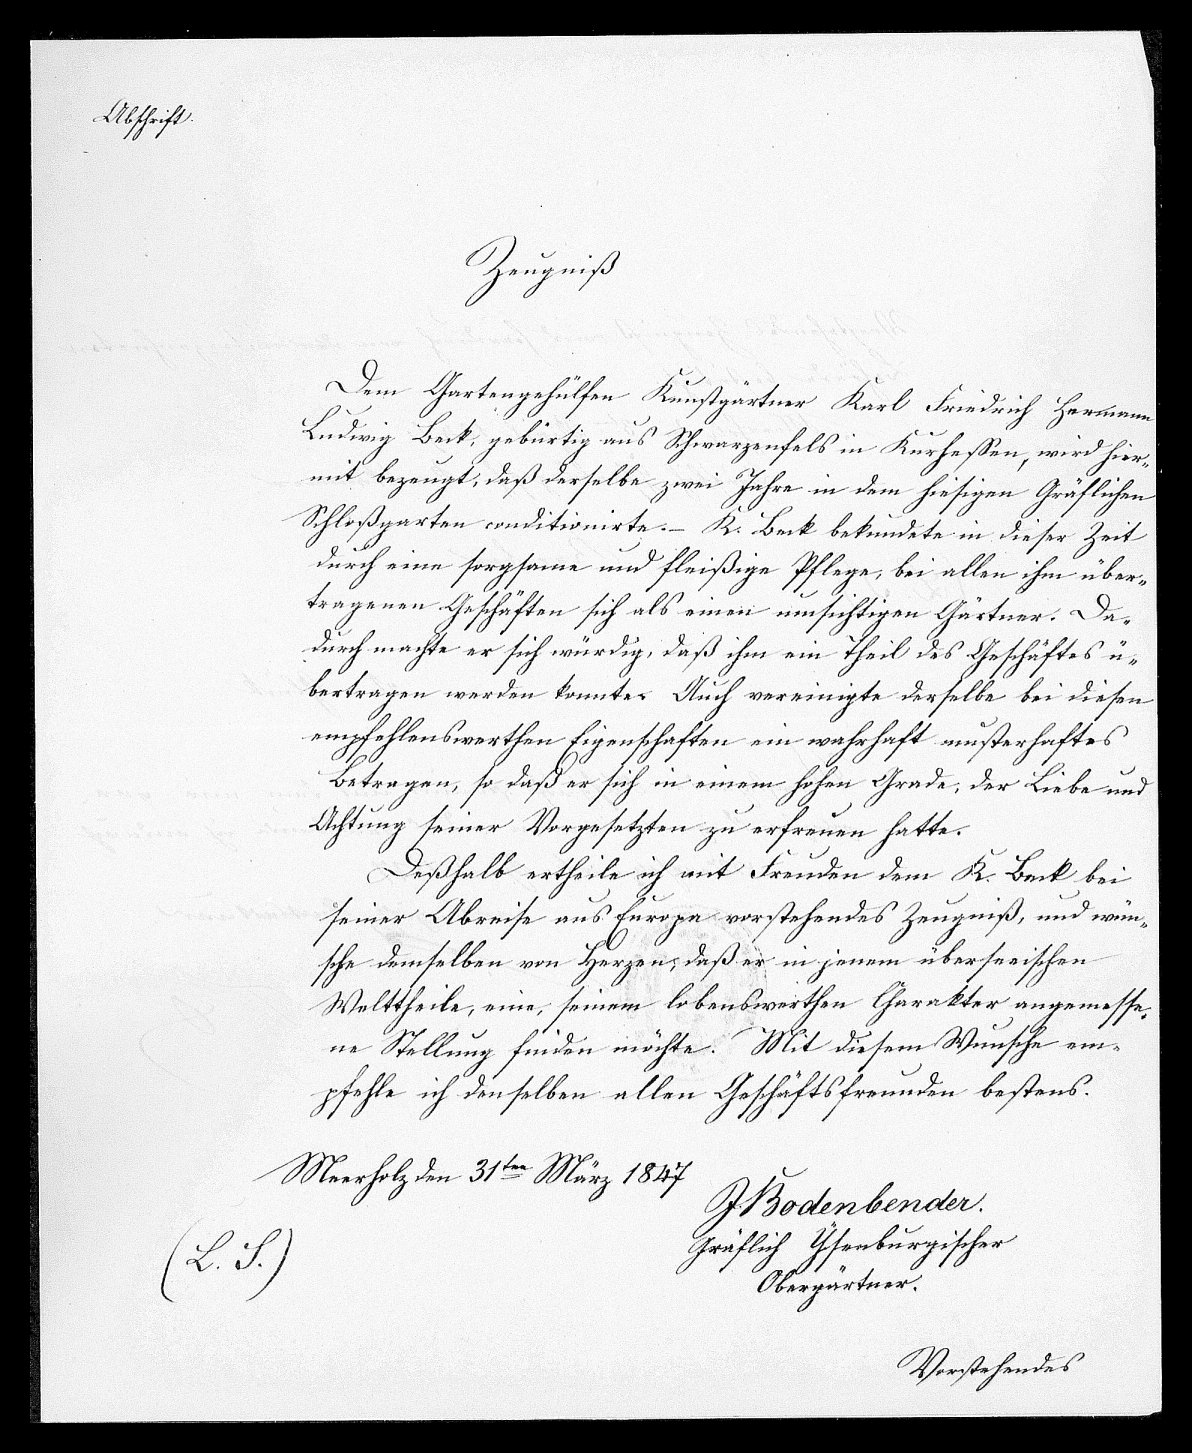 Abschrift.
Zeugniß
Dem Gartengehülfen Kunstgärtner Karl Friedrich Hermann
Ludwig Beck, gebürtig aus Schwarzenfels in Kurhessen, wird hier-
mit bezeugt, daß derselbe zwei Jahre in dem hiesigen Gräflichen
Schloßgarten conditionirte. – K. Beck bekundete in dieser Zeit
durch eine sorgsame und fleißige Pflege, bei allen ihm über-
tragenen Geschäften sich als einen umsichtigen Gärtner. Da-
durch machte er sich würdig, daß ihm ein Theil des Geschäftes ü-
bertragen werden konnte. Auch vereinigte derselbe bei diesen
empfehlenswerthen Eigenschaften ein wahrhaft musterhaftes
Betragen, so daß er sich in einem hohen Grade, der Liebe und
Achtung seiner Vorgesetzten zu erfreuen hatte.
Deßhalb ertheile ich mit Freuden dem K. Beck bei
seiner Abreise aus Europa vorstehendes Zeugniß, und wün-
sche demselben von Herzen, daß er in jenem überseeischen
Welttheile, eine, seinem lobenswerthen Charakter angemesse-
ne Stellung finden möchte. Mit diesem Wunsche em-
pfehle ich denselben allen Geschäftsfreunden bestens.
Meerholz den 31ten März 1847
J. Bodenbender.
Gräflich Ysenburgischer
Obergärtner.
(L. S.)
Vorstehendes